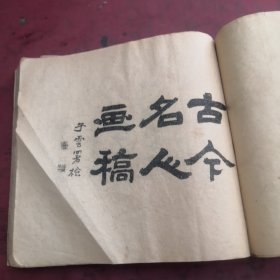 古今
名人
画稿
子云署检